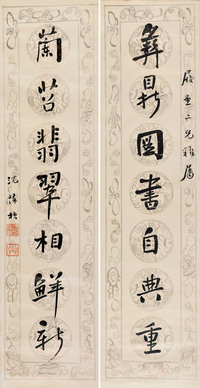 二兄雅屬
彝鼎圖書自典重
蘭苕翡翠相鮮新
沈葆楨